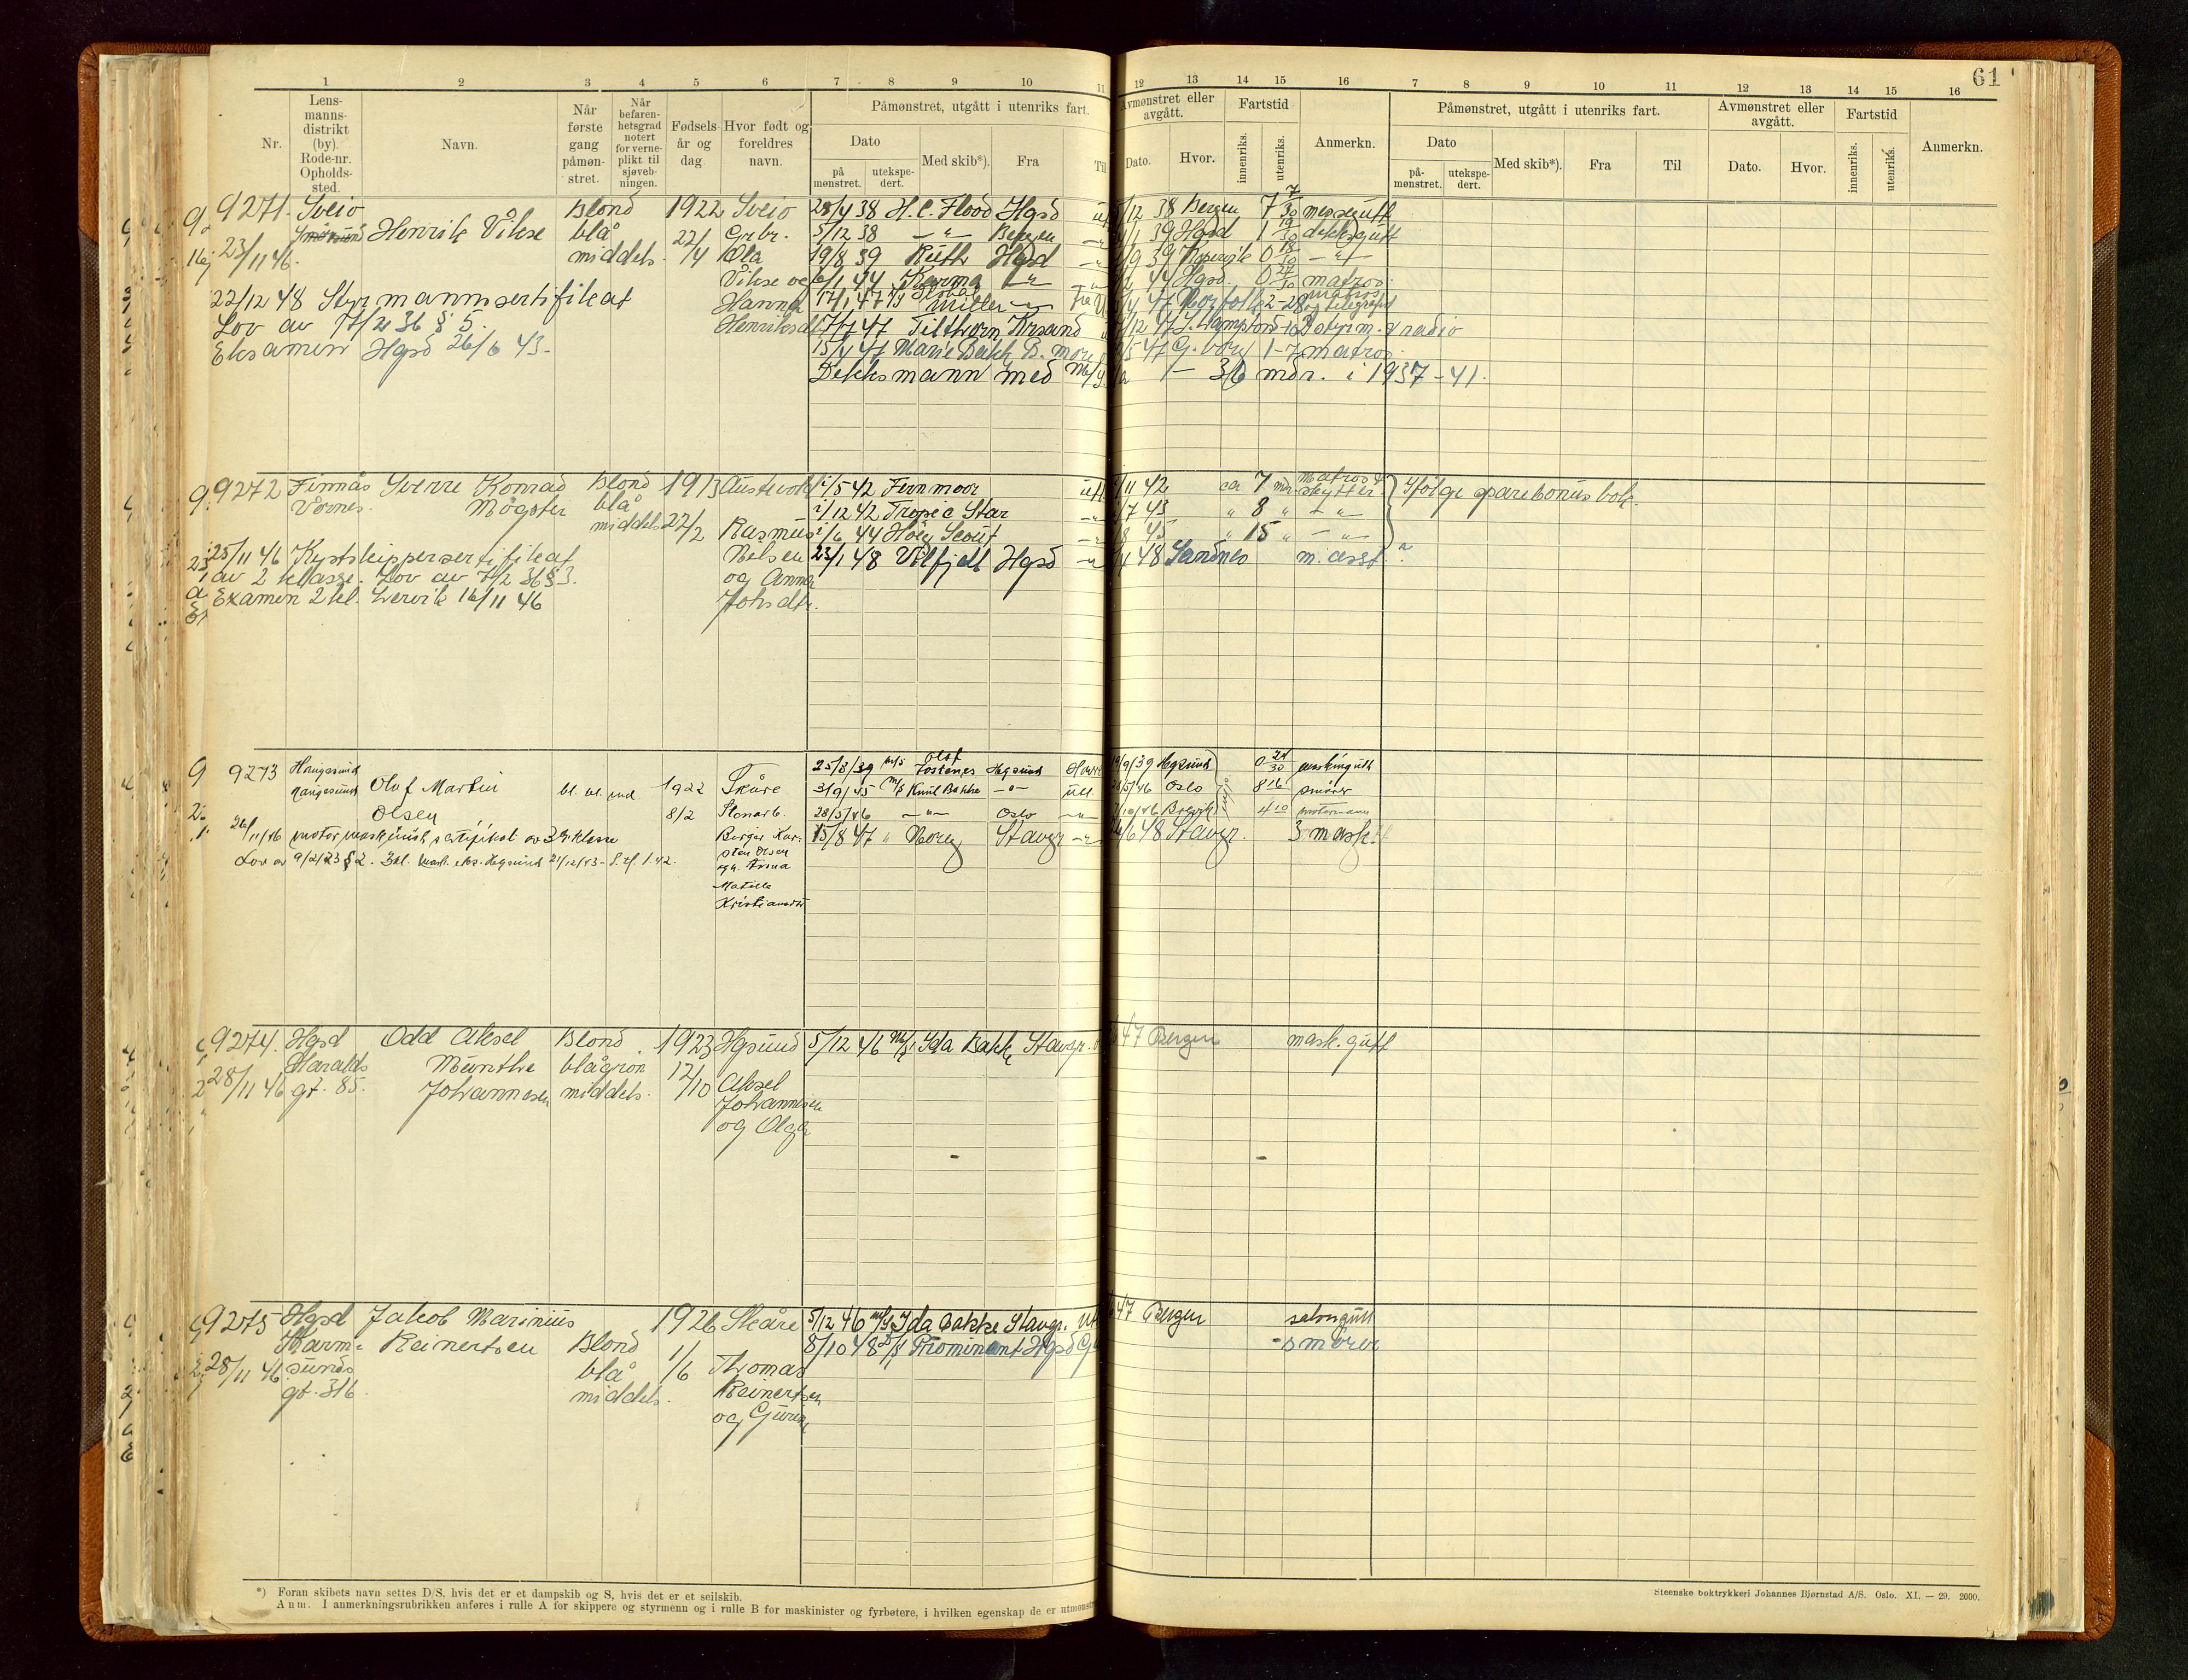 61
1 2 3 4 5 6 7 8 9 10 11 12 13 14 15 16 7 8 9 10 11 12 13 14 15 16
Nr.
Lens-
manns-
distrikt
(by).
Rode-nr.
Opholds-
sted.
Navn.
Når
første
gang
påmøn-
stret.
Når
befaren-
hetsgrad
notert
for verne-
plikt til
sjøveb-
ningen.
Fødsels-
år og
dag.
Hvor født og
foreldres
navn.
Påmønstret, utgått i utenriks fart.
Dato
på
mønstret.
utekspe-
dert.
Med skib*).
Fra
Til
Avmønstret eller
avgått.
Dato.
Hvor.
Fartstid
innenriks.
utenriks.
Anmerkn.
Påmønstret, utgått i utenriks fart.
Dato
på-
mønstret.
utekspe-
dert.
Med skib*).
Fra
Til
Avmønstret eller
avgått.
Dato.
Hvor.
Fartstid
innenriks.
utenriks.
Anmerkn.
9271. Sveio Blond 1922 Sveio 28/4 38 H. C. Flood Hgsd 12 38 Bergen 7 7/30 messegutt
Henrik Vikse blå 22/4 Gr. br. 5/12 38 - " - Bergen 39 Hgsd 1 dekksgutt
23/11 46. middels. Ola 19/8 39 Ruth Hgsd 39 Kopervik 0 - " -
Vikse og 6/1 44 Karma - " - 44 Hgsd. 0 27/30 matros.
22/12 48 Styrmannsertifikat Hanna 17/1 47 Miller 47 Norfolk 2-28 matros og telegrafist
Lov av 7/2 36 § 5. Henriksd. 47 Tilthorn Krsand 47 styrm. & radio
Eksamen Hgsd 26/6 43. 15/4 47 Marie Bakk B. more 5 47 G. borg 1-7 matros.
Dekksmann med 1 - 36 mdr. i 1937-41.
9272 Finnås Sverre Konrad Blond 1913 Austevold 5 42 Fernmoor 11 42 ca 7 mdr. Matros & skytter Ifølge sparebonusbok.
Vornes. Møgster blå 12 42 Tropic Star 7 43 " 8 " - " -
middels 27/2 Rasmus 6 44 Høeg Scout 8 45 " 15 " - " -
25/11 46 Kystskippersertifikat Nelsen 23/1 48 Ulfjell Hgsd 48 Sandnes m. asst.
av 2 klasse. Lov av 7/2 36 § 3. og Anna
Examen 2 kl. Lervik 16/11 46 Johsdtr.
9273 Haugesund Olaf Martin bl. bl. md. 1922 Skåre 25/8/39 m/s Olaf Fostenes Hgsund 19/9/39 Hgsund 0 24/30 maskingutt
Haugesund Olsen 8/2 Stenarb. 3/9/45 m/s Knut Bakke - " - utl. 28/5/46 Oslo 8 16 smører
26/11/46 motormaskinist sertifikat av 3dje klasse Birger Kar- 28/5/46 - " - Oslo - " - 10/46 Brevik 4 10 motormann
Lov av 9/2/23 § 2. 3kl. mask. eks. Hgsund 21/12/43 sten Olsen 15/8 47 " Norey Stavgr 6 48 Stavgr. 3. mask.
og h. Anna
Matilde
Kristiansdtr
9274. Hgsd Odd Aksel Blond 1923 Hgsund 5/12 46 M/s Ida Bakke Stavgr. 47 Bergen mask. gutt
Haralds Münthe blågrøn 12/10 Aksel
28/11 46 gt. 85. Johannesen middels. Johannesen
og Olga
9275 Hgsd Jakob Marinius 1926 Skåre 5/12 46 m/s Ida Bakke Stavgr. Utl 47 Bergen salongutt
Karm- Reinertsen Blond 1/6 Thomas 8/10 48 D/S Prominent Hgsd smører
28/11 46 sunds blå Reinertsen
gt. 316. middels. og Gurine
*) Foran skibets navn settes D/S, hvis det er et dampskib og S, hvis det er et seilskib.
Anm. I anmerkningsrubrikken anføres i rulle A for skippere og styrmenn og i rulle B for maskinister og fyrbøtere, i hvilken egenskap de er utmønstr
Steenske boktrykkeri Johannes Bjørnstad A/S. Oslo. XI. — 29. 2000.